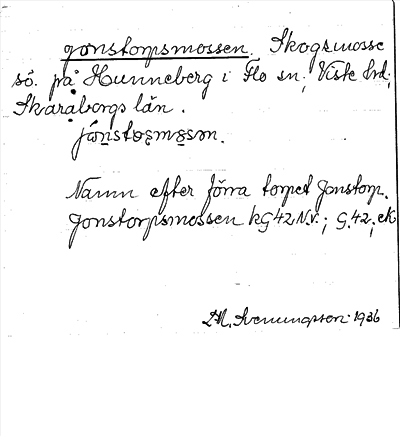 Jonstorpsmossen. Skogsmosse
sö. på Hunneberg i Flo sn, Viste hd,
Skaraborgs län.
Namn efter förra torpet Jonstorp.
Jonstorpsmossen kG42 N.V.; G.42, ek
1936